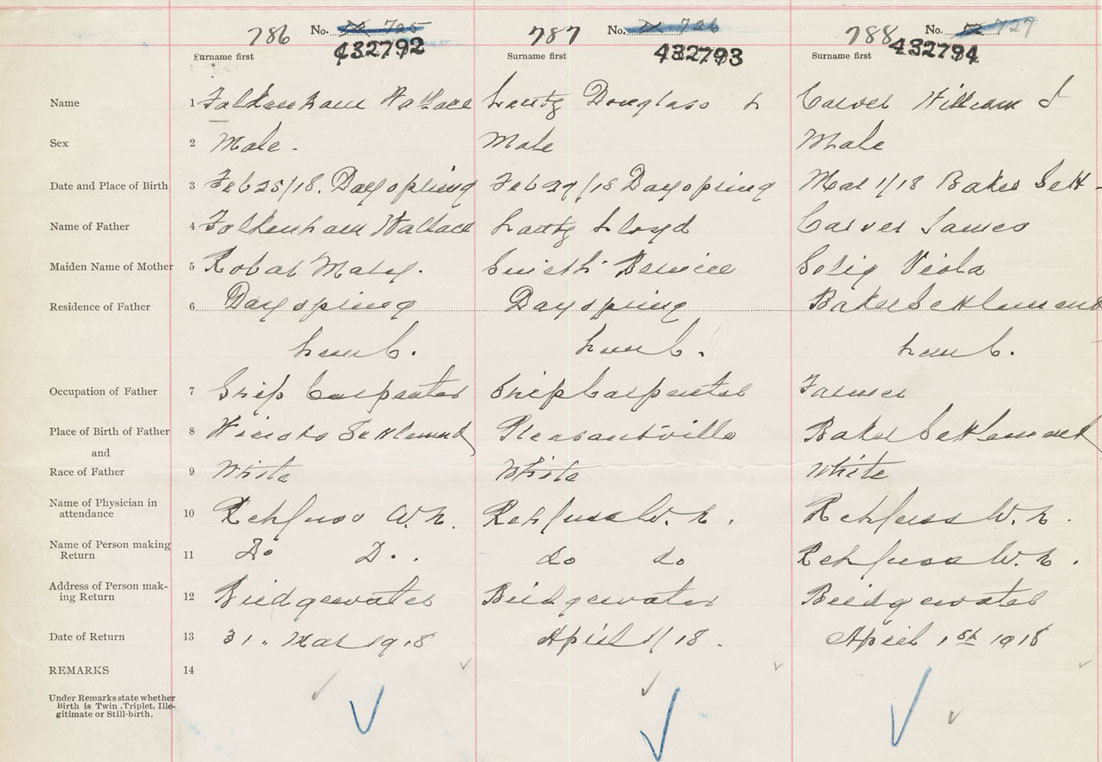 786 No. 725 787 No. 726 788 No. 727
432792 432793 432794
Surname first Surname first Surname first
Name 1 Falkenham Wallace Lantz Douglass L Carver William J
Sex 2 Male. Male Male
Date and Place of Birth 3 Feb 25/18. Dayspring Feb 27/18 Dayspring Mar 1/18 Baker Sett
Name of Father 4 Falkenham Wallace Lantz Lloyd Carver James
Maiden Name of Mother 5 Robar Mary. Smith Bernice Selig Viola
Residence of Father 6 Dayspring Dayspring Baker Settlement
Lun C. Lun C. Lun C.
Occupation of Father 7 Ship Carpenter Ship Carpenter Farmer
Place of Birth of Father 8 Settlement Pleasantville Baker Settlement
and
Race of Father 9 White White White
Name of Physician in
attendance 10 Rehfuss W. N. Rehfuss W. N. Rehfuss W. N.
Name of Person making
Return 11 Do Do. do do Rehfuss W. N.
Address of Person mak-
ing Return 12 Bridgewater Bridgewater Bridgewater
Date of Return 13 31. Mar 1918 April 1/18. April 1st 1918
REMARKS 14
Under Remarks state whether
Birth is Twin, Triplet, Ille-
gitimate or Still-birth.